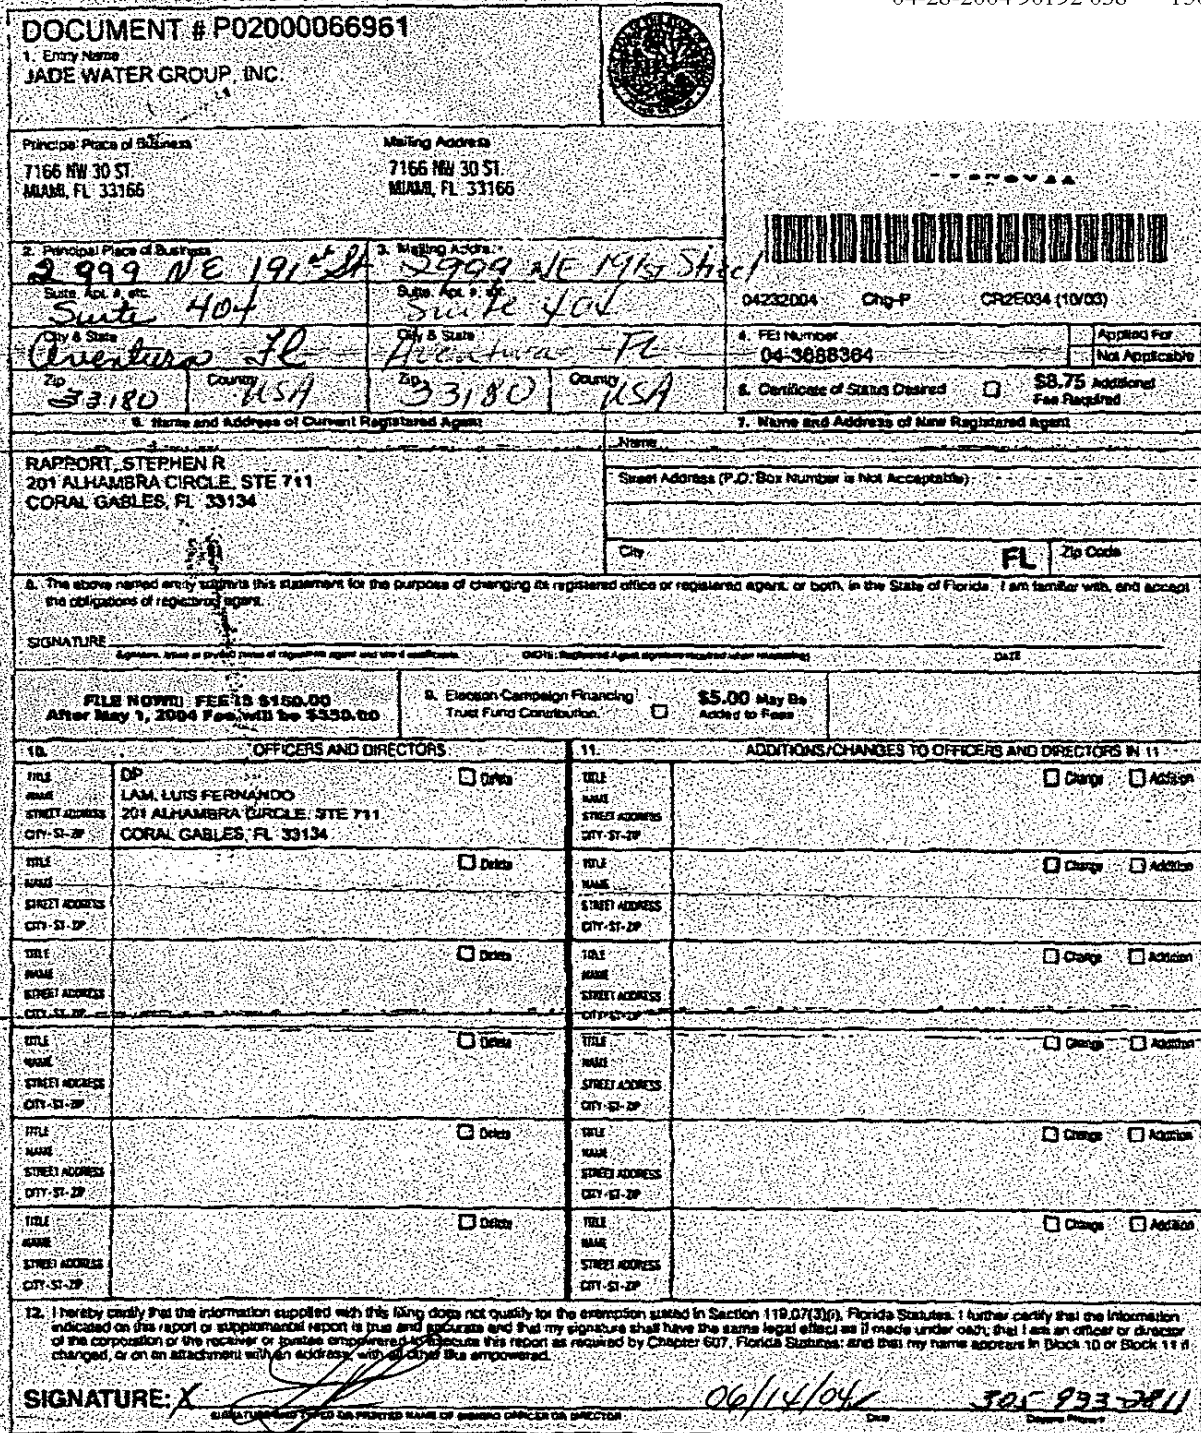 DOCUMENT # P02000066961
1. Entity Name
JADE WATER GROUP, INC.
Principal Place of Business
Mailing Address
7166 NW 30 ST.
MIAMI, FL 33166
7166 NW 30 ST.
MIAMI, FL 33166
2. Principal Place of Business
2999 NE 191st St
3. Mailing Address
2999 NE 191st Street
Suite, Apt. #, etc.
Suite 404
Suite, Apt. #, etc.
Suite 404
City & State
Aventura FL
City & State
Aventura FL
Zip
33180
Country
USA
Zip
33180
Country
USA
04232004 Chg-P CR2E034 (10/03)
4. FEI Number
04-3688364
Applied For
Not Applicable
5. Certificate of Status Desired
$8.75 Additional
Fee Required
6. Name and Address of Current Registered Agent
RAPPORT, STEPHEN R
201 ALHAMBRA CIRCLE, STE 711
CORAL GABLES, FL 33134
7. Name and Address of New Registered Agent
Name
Street Address (P.O. Box Number is Not Acceptable)
City
FL
Zip Code
8. The above named entity submits this statement for the purpose of changing its registered office or registered agent, or both, in the State of Florida. I am familiar with, and accept
the obligations of registered agent.
SIGNATURE
Signature, typed or printed name of registered agent and title if applicable.
(NOTE: Registered Agent signature required when reinstating)
DATE
FILE NOW!!! FEE IS $150.00
After May 1, 2004 Fee will be $550.00
9. Election Campaign Financing
Trust Fund Contribution.
$5.00 May Be
Added to Fees
10. OFFICERS AND DIRECTORS
11. ADDITIONS/CHANGES TO OFFICERS AND DIRECTORS IN 11
TITLE DP Delete
NAME LAM, LUIS FERNANDO
STREET ADDRESS 201 ALHAMBRA CIRCLE, STE 711
CITY-ST-ZIP CORAL GABLES, FL 33134
TITLE Change Addition
NAME
STREET ADDRESS
CITY-ST-ZIP
TITLE Delete
NAME
STREET ADDRESS
CITY-ST-ZIP
TITLE Change Addition
NAME
STREET ADDRESS
CITY-ST-ZIP
TITLE Delete
NAME
STREET ADDRESS
CITY-ST-ZIP
TITLE Change Addition
NAME
STREET ADDRESS
CITY-ST-ZIP
TITLE Delete
NAME
STREET ADDRESS
CITY-ST-ZIP
TITLE Change Addition
NAME
STREET ADDRESS
CITY-ST-ZIP
TITLE Delete
NAME
STREET ADDRESS
CITY-ST-ZIP
TITLE Change Addition
NAME
STREET ADDRESS
CITY-ST-ZIP
TITLE Delete
NAME
STREET ADDRESS
CITY-ST-ZIP
TITLE Change Addition
NAME
STREET ADDRESS
CITY-ST-ZIP
12. I hereby certify that the information supplied with this filing does not qualify for the exemption stated in Section 119.07(3)(i), Florida Statutes. I further certify that the information
indicated on this report or supplemental report is true and accurate and that my signature shall have the same legal effect as if made under oath; that I am an officer or director
of the corporation or the receiver or trustee empowered to execute this report as required by Chapter 607, Florida Statutes; and that my name appears in Block 10 or Block 11 if
changed, or on an attachment with an address, with all other like empowered.
SIGNATURE: X 06/14/04 305-933-2811
SIGNATURE AND TYPED OR PRINTED NAME OF SIGNING OFFICER OR DIRECTOR
Date
Daytime Phone #